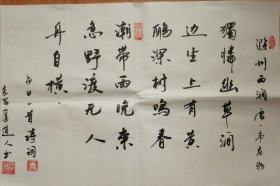 滁州西涧唐韦应物
獨憐幽草澗
边生上有黄
鹂深树鸣春
潮带雨晚来
急野渡无人
舟自横
日一首诗词
道人书